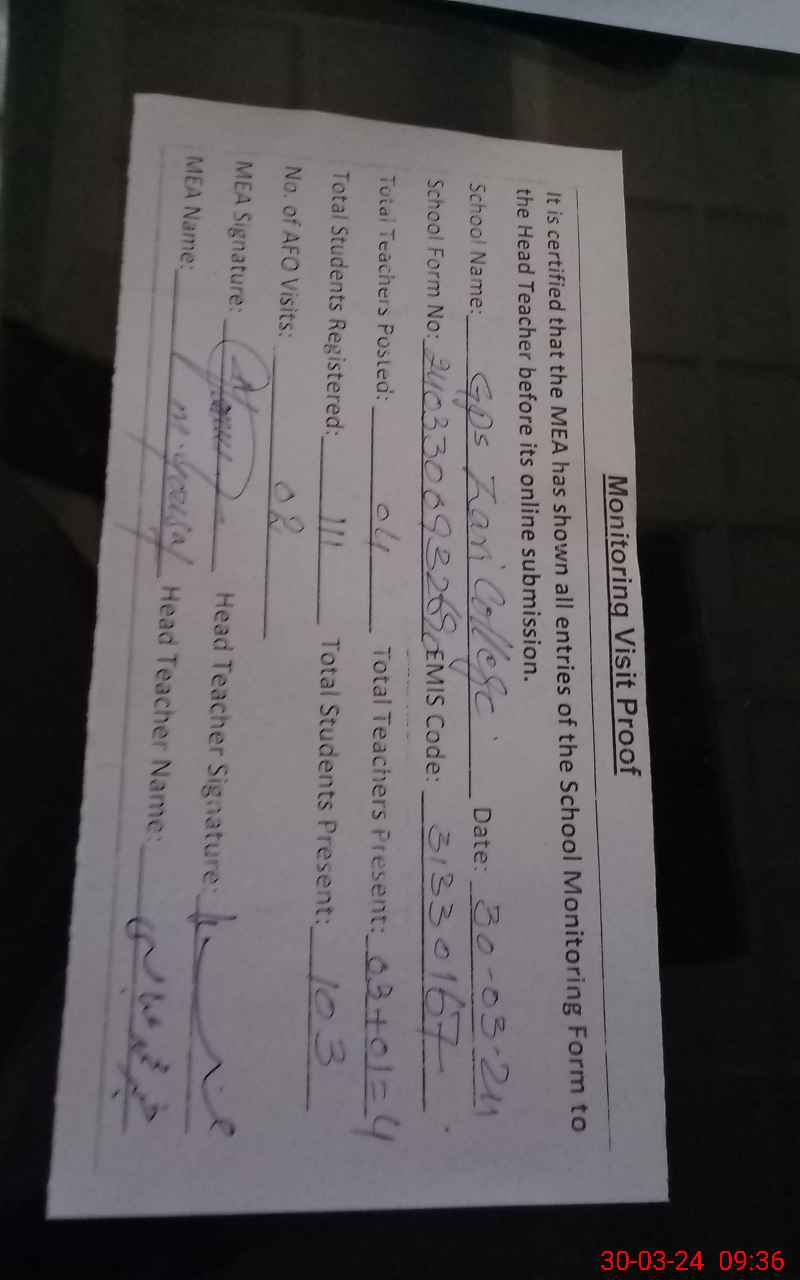 Monitoring Visit Proof
It is certified that the MEA has shown all entries of the School Monitoring Form to
the Head Teacher before its online submission.
School Name: GPS Zari College Date: 30-03-24
School Form No: EMIS Code: 31330167
Total Teachers Posted: 04 Total Teachers Present: 03+01=4
Total Students Registered: 111 Total Students Present: 103
No. of AFO Visits: 02
MEA Signature: Head Teacher Signature:
MEA Name: M. Yousaf Head Teacher Name:
30-03-24 09:36